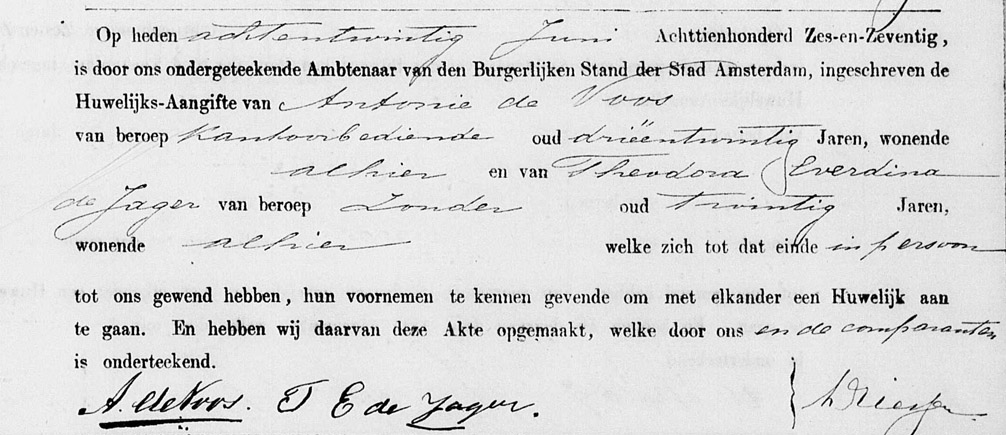 Op heden achtentwintig Juni Achttienhonderd Zes-en-Zeventig,
is door ons ondergeteekende Ambtenaar van den Burgerlijken Stand der Stad Amsterdam, ingeschreven de
Huwelijks-Aangifte van Antonie de Voos
van beroep Kantoorbediende oud drieëntwintig Jaren, wonende
alhier en van Theodora Everdina
de Jager van beroep Zonder oud twintig Jaren,
wonende alhier welke zich tot dat einde in persoon
tot ons gewend hebben, hun voornemen te kennen gevende om met elkander een Huwelijk aan
te gaan. En hebben wij daarvan deze Akte opgemaakt, welke door ons en de comparanten
is onderteekend.
A. de Voos. T E de Jager.